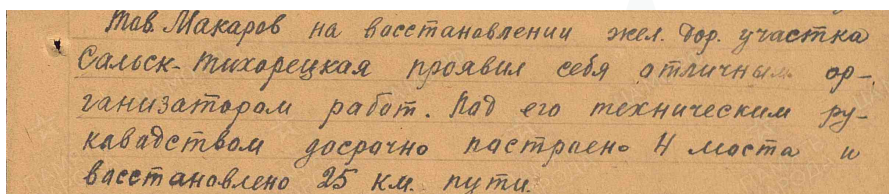 Тов. Макаров на восстановлении жел. дор. участка
Сальск-Тихорецкая проявил себя отличным ор-
ганизатором работ. Под его техническим ру-
ководством досрочно построено 4 моста и
восстановлено 25 км. пути.